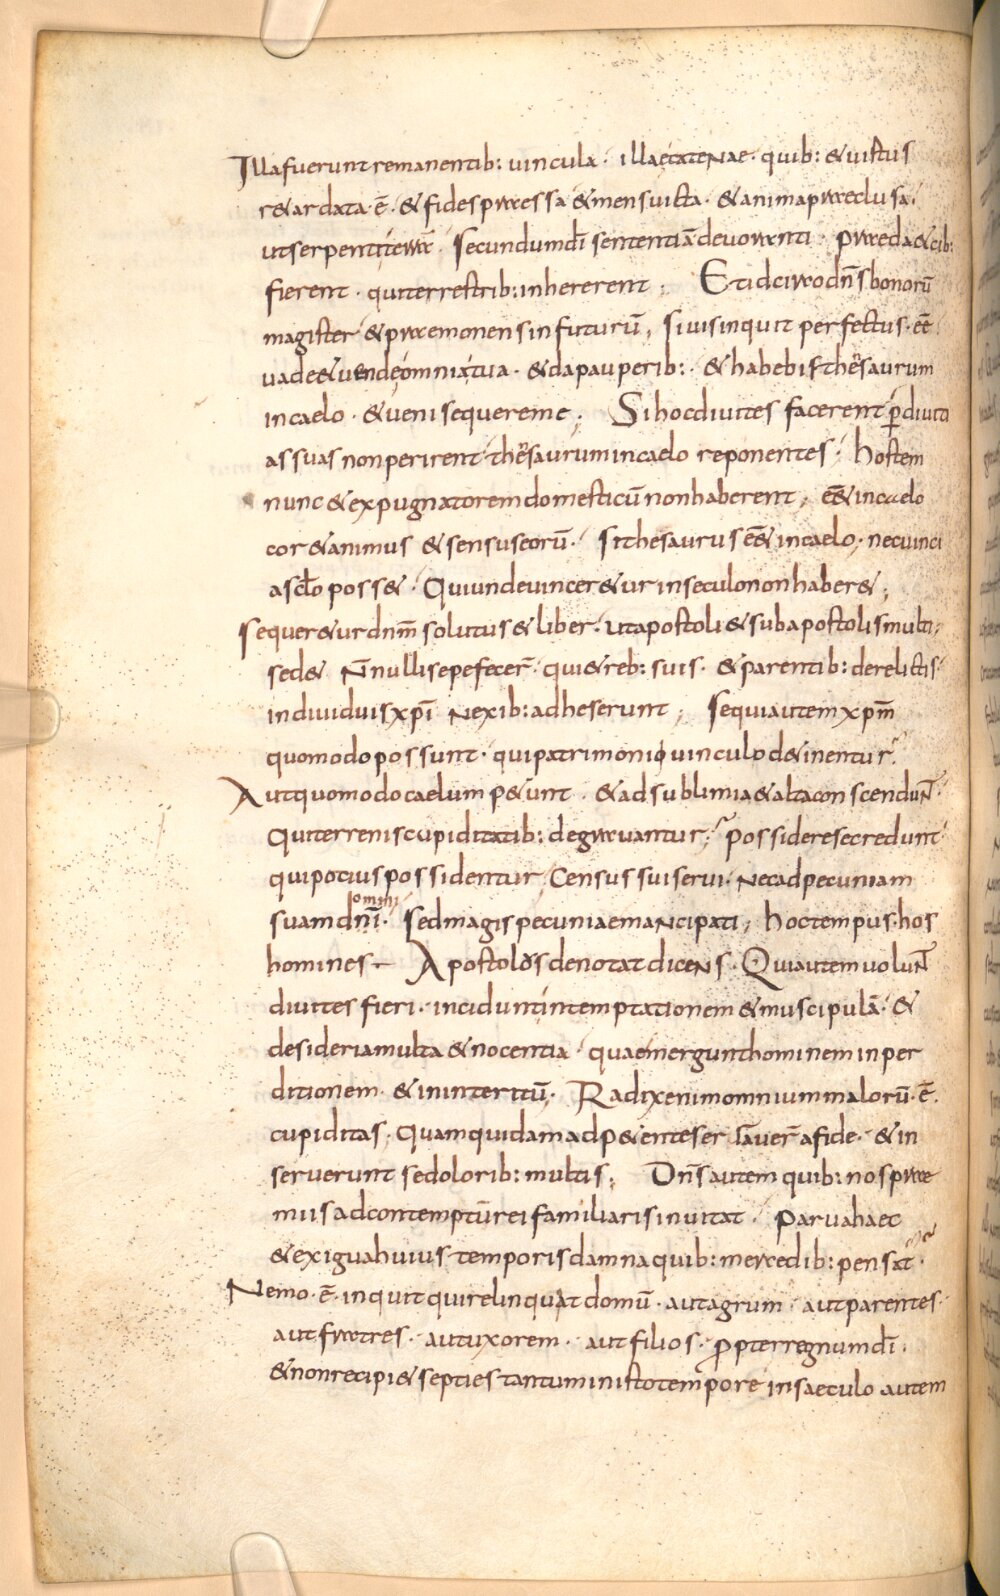 Illa fuerunt remanentib: uincula · illae catenae · quib: & uirtus
r&ardata · ē · & fides praessa & mens uicta · & anima praeclusa ·
ut serpenti terrā · secundum dī sententiā deuoranti · praeda & cib:
fierent · qui terrestrib: inhererent ; Et idcirco dn̄s bonorū
magister & praemonens in futurū ; si uis inquit perfectus · eē
uade & uende omnia tua · & da pauperib: · & habebis thesaurum
in caelo · & ueni sequere me ; Si hoc diuites facerent · p̱ diuiti
as suas non perirent · thesaurum in caelo reponentes · hostem
nunc & expugnatorem domesticū non haberent ; eē& in caelo
cor & animus & sensus eorū · si thesaurus eē& in caelo · nec uinci
a sc̄lo poss& · Qui unde uincer&ur in seculo non haber& ;
sequer&ur dn̄m solutus & liber · ut apostoli & sub apostolis multi ;
sed & n̄nulli sepe fecer̄ · qui & reb: suis · & parentib: derelictis
indiuiduis xp̄i nexib: adheserunt ; sequi autem xp̄m
quomodo possunt · qui patrimonii uinculo d&inentur ·
Aut quomodo caelum p&unt · & ad sublimia & alta conscendun̄t
Qui terrenis cupiditatib: degrauantur ; possidere se credunt
qui potius possidentur Census sui serui · nec ad pecuniam
suam dn̄i omini · sed magis pecuniae mancipati ; hoc tempus · hos
homines — Apostolus denotat dicens · Qui autem uolun̄t
diuites fieri · incidunt in temptationem & muscipulā · &
desideria multa & nocentia · quae mergunt hominem in per
ditionem · & in interitū · Radix enim omnium malorū · ē ·
cupiditas · Quam quidam adp&entes errauer̄ a fide · & in
seruerunt se dolorib: multis ; Dn̄s autem quib: nos prae
miis ad contemptū rei familiaris inuitat · parua haec
& exigua huius temporis damna quib: mercedib: pensat ·
Nemo · ē · inquit qui relinquat domū · aut agrum · aut parentes ·
aut fratres · aut uxorem · aut filios · p̱pter regnum dī ·
& non recipi& septies tantum in isto tempore in saeculo autem